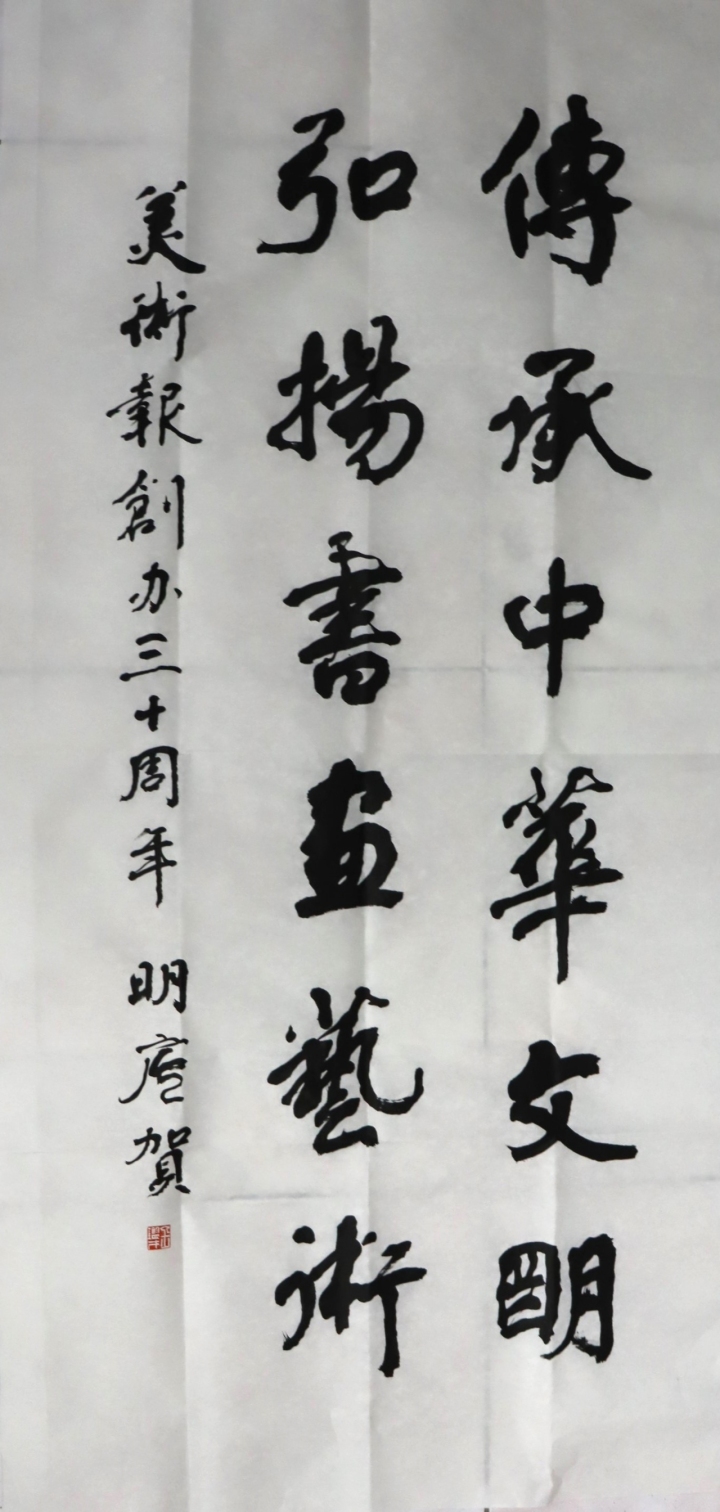 傳承中華文明
弘揚書畫藝術
美術報創办三十周年 明廬賀